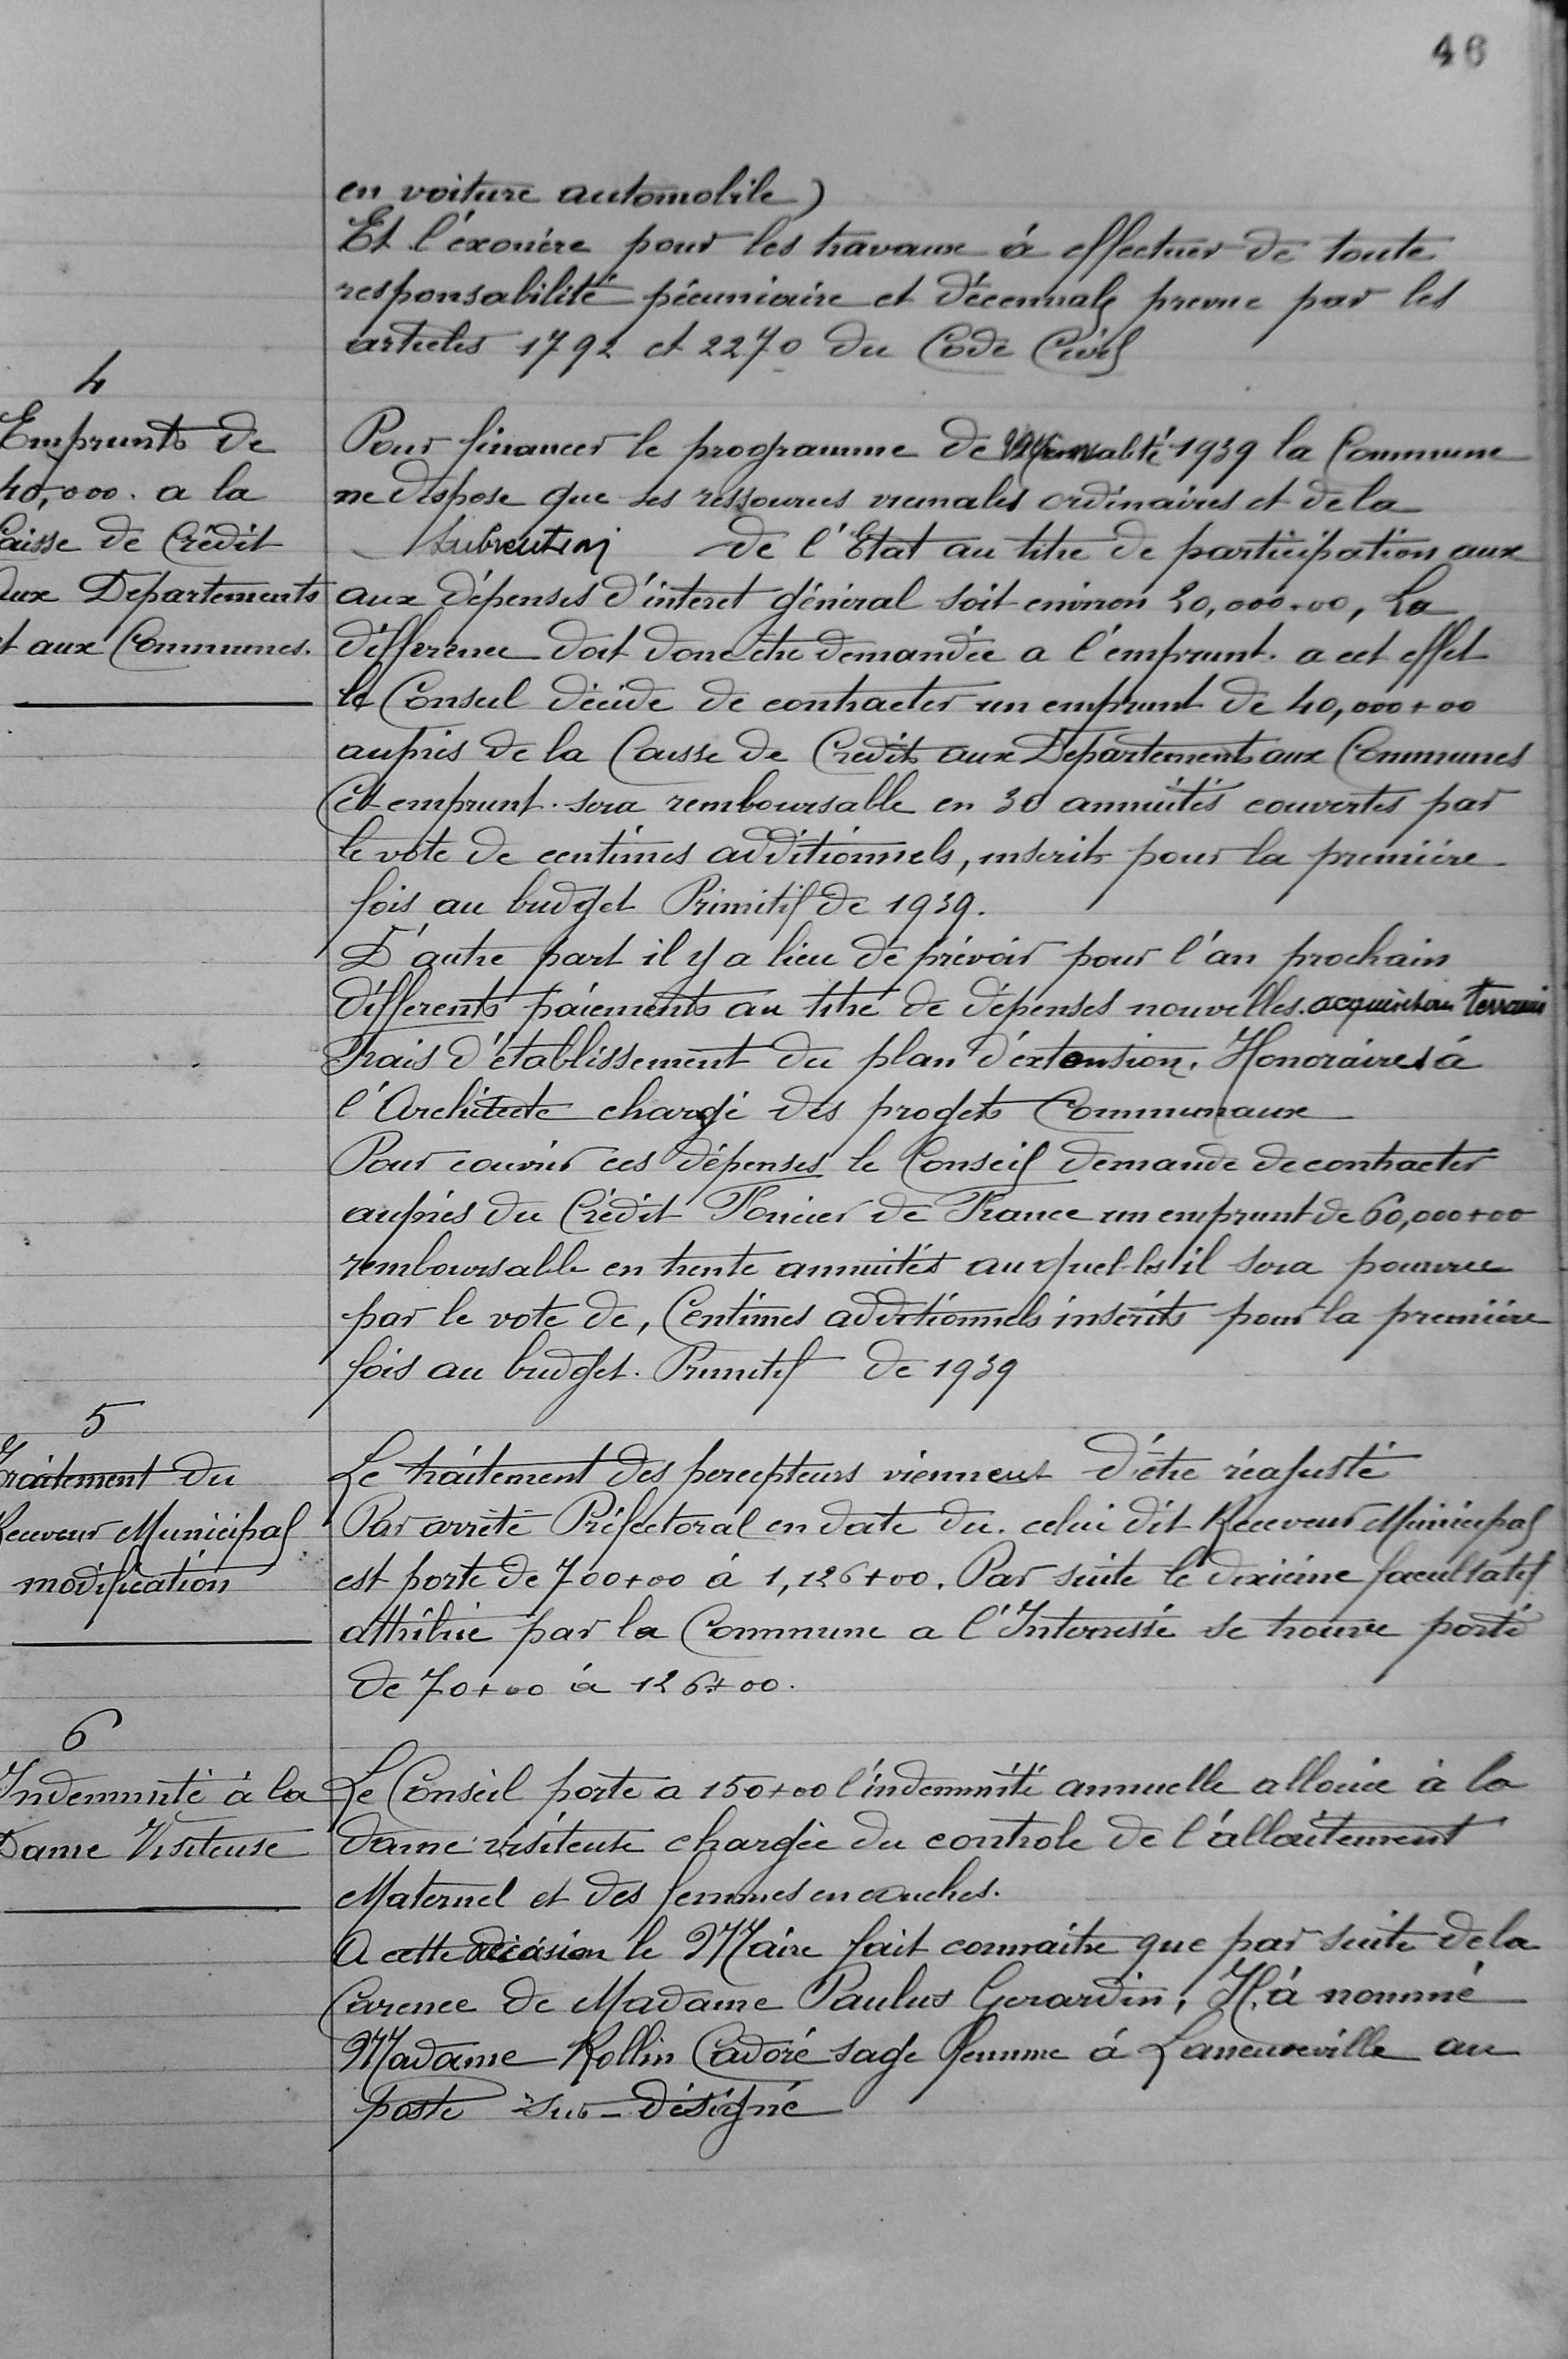 46
en voiture automobile)
Et l'éxonère pour les travaux à effectuer de toute
responsabilité pécuniaire et décennale prevue par les
articles 1792 et 2270 du Code Civil
4
Emprunts de
40,000. a la
Caisse de Crédit
aux Departements
et aux Communes.
Pour financer le programme de Vicinalité 1939 la Commune
ne dispose que ses ressources vicinales ordinaires et de la
Subvention de l'Etat au titre de participation aux
aux dépenses d'interet général soit environ 20,000+00, La
différence doit donc être demandée a l'emprunt. a cet effet
le Conseil décide de contracter un emprunt de 40,000+00
auprès de la Caisse de Crédit aux Departements aux Communes
Cet emprunt. sera remboursable en 30 annuités couvertes par
le vote de centimes additionnels, inscrits pour la première
fois au budget Primitif de 1939.
D'autre part il y a lieu de prévoir pour l'an prochain
différents paiements au titre de dépenses nouvelles. acquisition terrain
Frais d'établissement du plan d'extension. Honoraires à
l'Architecte chargé des progets Communaux
Pour couvrir ces dépenses le Conseil demande de contracter
auprès du Crédit Foncier de France un emprunt de 60,000+00
remboursable en trente annuités auquel-les il sera pourvue
par le vote de, Centimes additionnels inscrits pour la première
fois au budget. Primitif de 1939
5
Traitement du
Receveur Municipal
modification
Le traitement des percepteurs viennent d'être réajusté
Par arrêté Préfectoral en date du. celui dit Receveur Municipal
est porte de 700+00 à 1,126+00. Par suite le dixième facultatif
attribué par la Commune a l'Interressé se trouve porté
de 70+00 à 126+00.
6
Indemnité à la
Dame Visiteuse
Le Conseil porte a 150+00 l'indemnité annuelle allouée à la
dame visiteuse chargée du controle de l'allaitement
Maternel et des femmes en couches.
A cette occasion le Maire fait connaitre que par suite de la
Carence de Madame Paulus Gerardin, Il à nommé
Madame Rollin Cadoré sage femme à Laneuveville au
poste sus-désigné